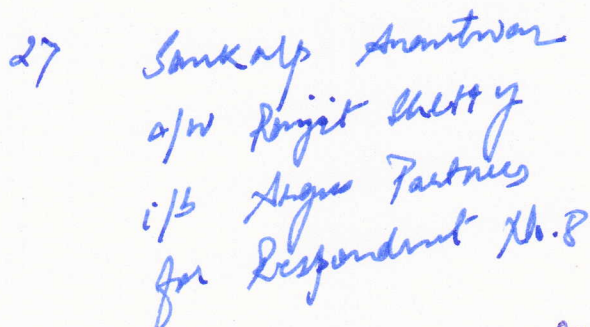 27 Sankalp Anantwar
a/w Ranjit Shetty
i/b Argus Partners
for Respondent No.8